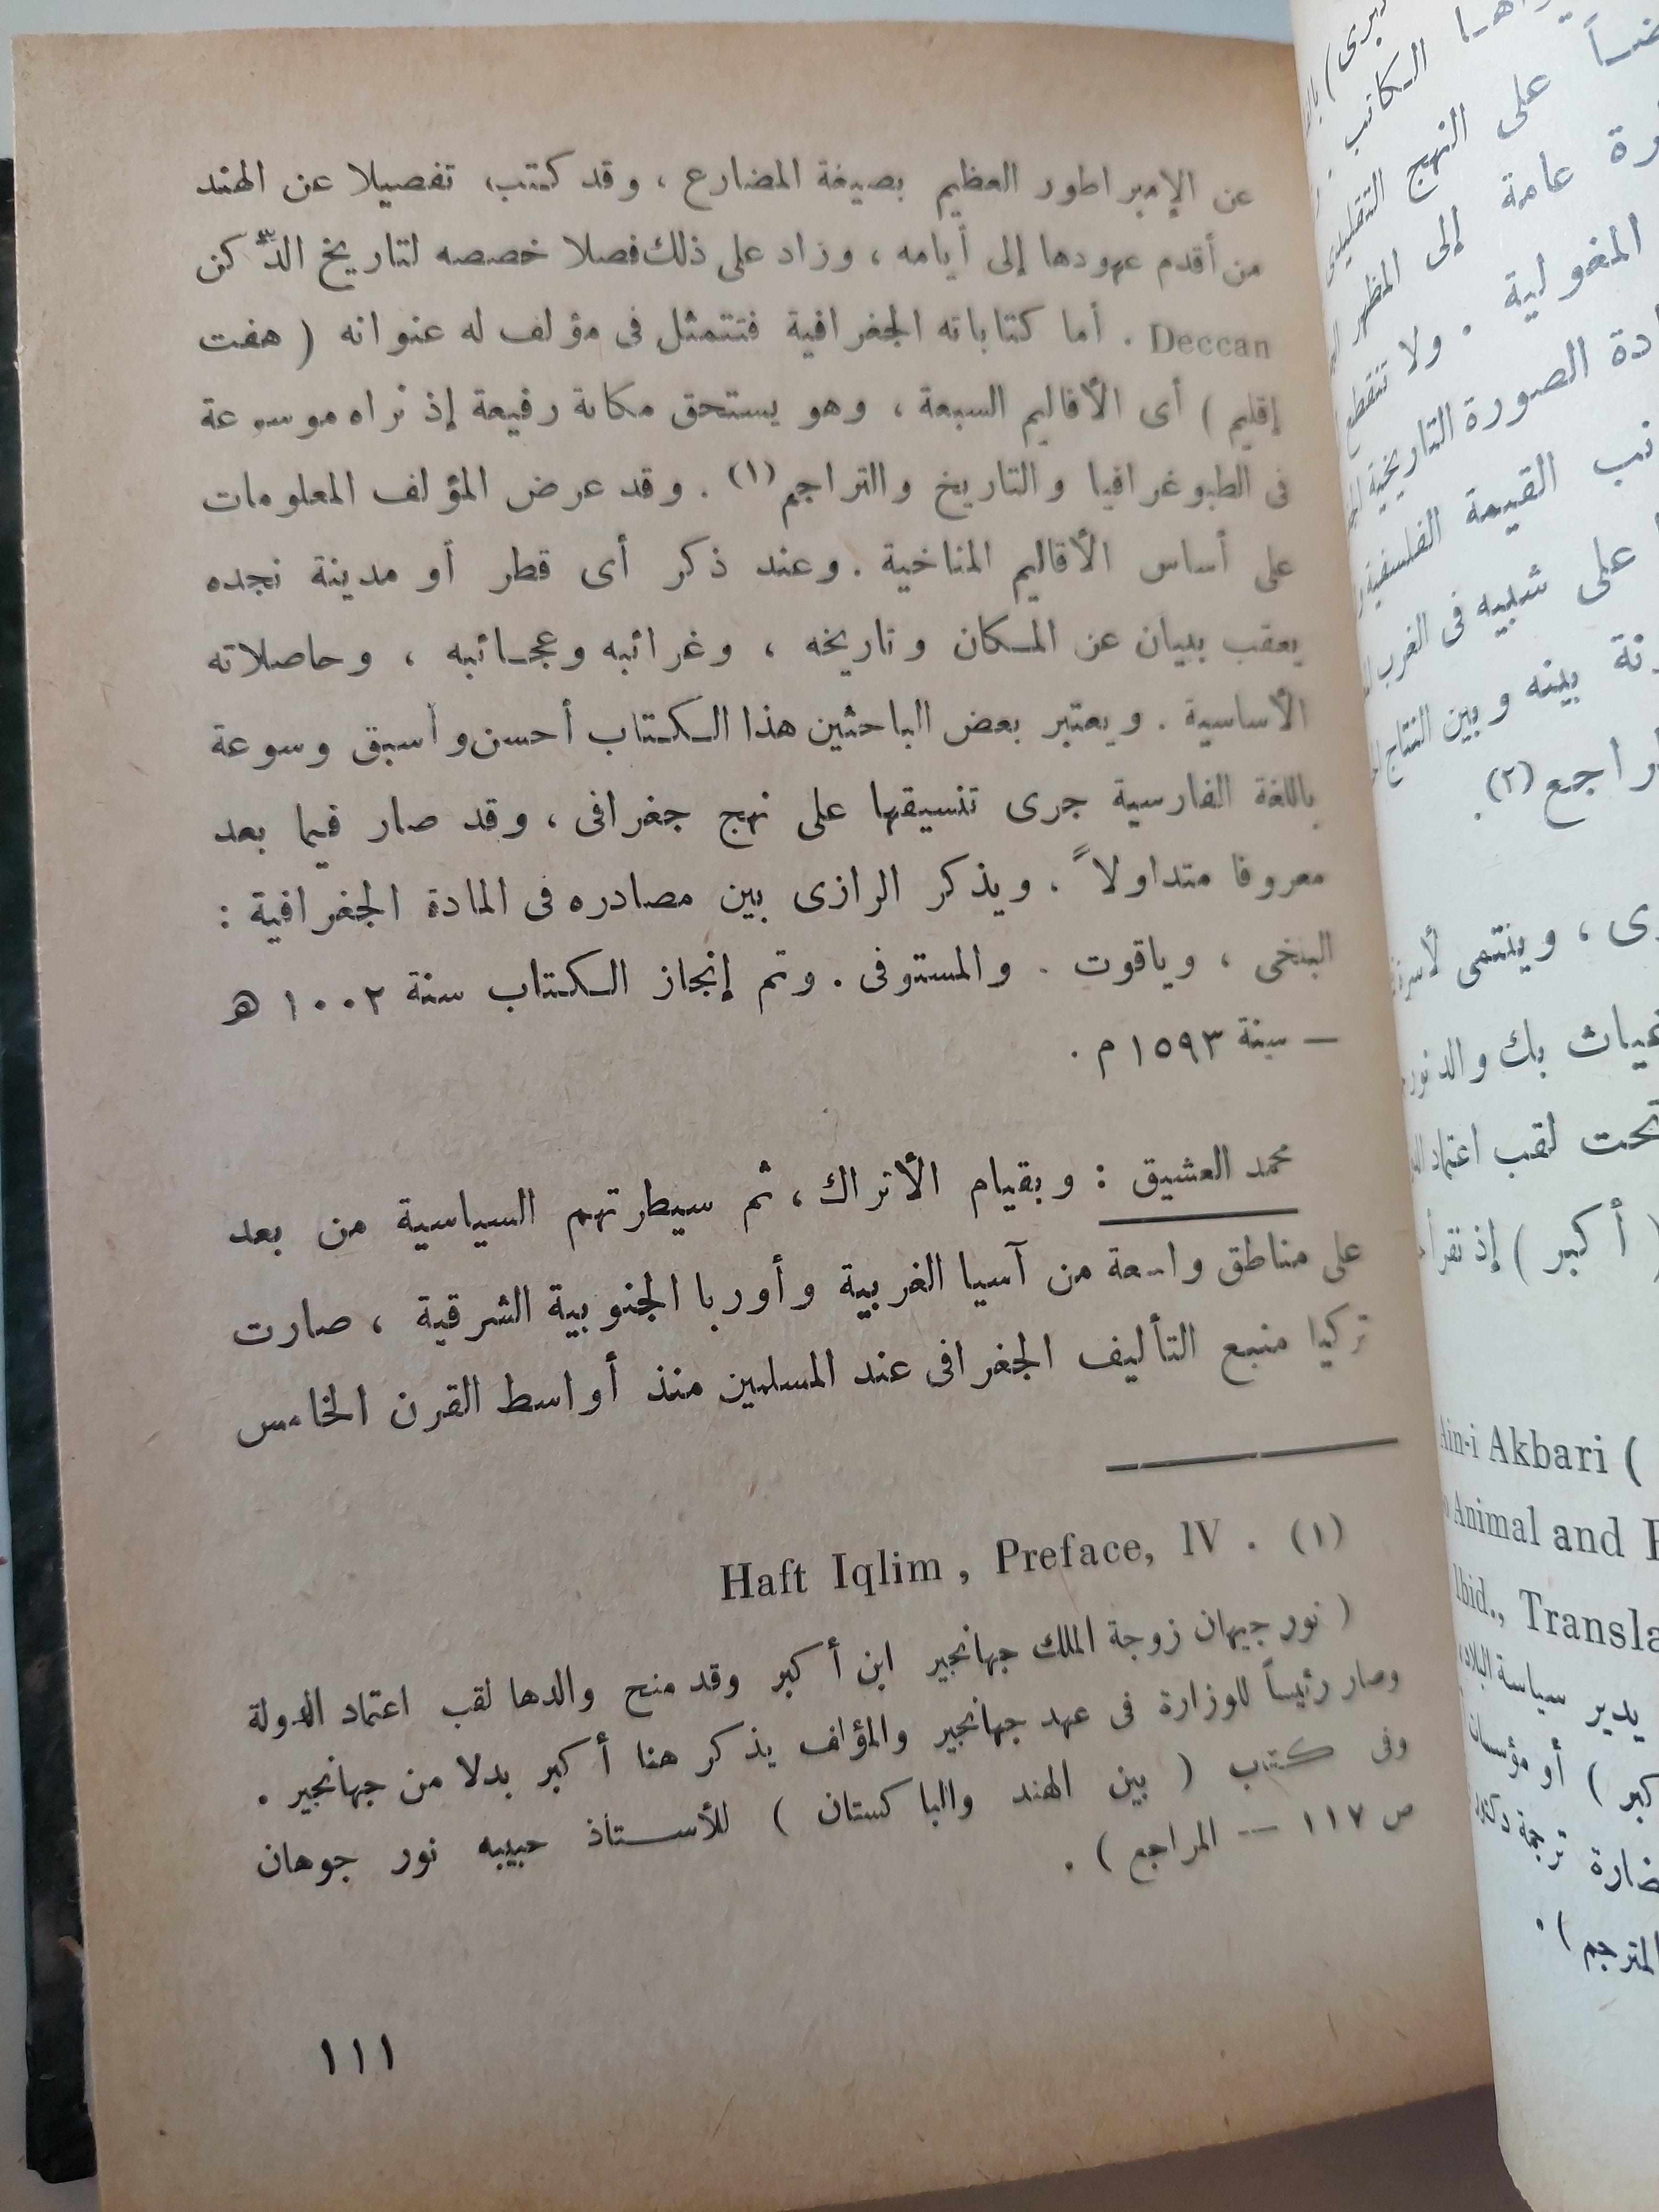 عن الإمبراطور العظيم بصيغة المضارع ، وقد كتب، تفصيلا عن الهند
من أقدم عهودها إلى أيامه ، وزاد على ذلك فصلا خصصه لتاريخ الدّكن
Deccan . أما كتاباته الجغرافية فتتمثل فى مؤلف له عنوانه ( هفت
إقليم ) أى الأقاليم السبعة ، وهو يستحق مكانة رفيعة إذ نراه موسوعة
فى الطبوغرافيا والتاريخ والتراجم (١) . وقد عرض المؤلف المعلومات
على أساس الأقاليم المناخية . وعند ذكر أى قطر أو مدينة نجده
يعقب ببيان عن المكان وتاريخه ، وغرائبه وعجائبه ، وحاصلاته
الأساسية . ويعتبر بعض الباحثين هذا الكتاب أحسن وأسبق وسوعة
باللغة الفارسية جرى تنسيقها على نهج جغرافى ، وقد صار فيما بعد
معروفا متداولاً . ويذكر الرازى بين مصادره فى المادة الجغرافية :
البنخى ، وياقوت . والمستوفى . وتم إنجاز الكتاب سنة ١٠٠٢ هـ
— سنة ١٥٩٣ م .
محمد العشيق : وبقيام الأتراك ، ثم سيطرتهم السياسية من بعد
على مناطق واسعة من آسيا الغربية وأوربا الجنوبية الشرقية ، صارت
تركيا منبع التأليف الجغرافى عند المسلمين منذ أواسط القرن الخامس
(١) Haft Iqlim , Preface, IV .
( نور جيهان زوجة الملك جهانجير ابن أكبر وقد منح والدها لقب اعتماد الدولة
وصار رئيساً للوزارة فى عهد جهانجير والمؤلف يذكر هنا أكبر بدلا من جهانجير .
وفى كتب ( بين الهند والباكستان ) للأستاذ حبيبه نور جوهان
ص ١١٧ — المراجع ) .
١١١
الكاتب
على النهج التقليدى
عامة إلى المظهر
المغولية . ولا تنقطع
الصورة التاريخية
القيمة الفلسفية
على شبيه فى الغرب
بينه وبين النتاج
(٢) .
، وينتمى لأسرة
غياث بك والد نور
تحت لقب اعتماد
( أكبر ) إذ نقرأ
Akbari (
Animal and
Ibid.,
يدير سياسة البلاد
) أو مؤسسات
ترجمة
المترجم ) .